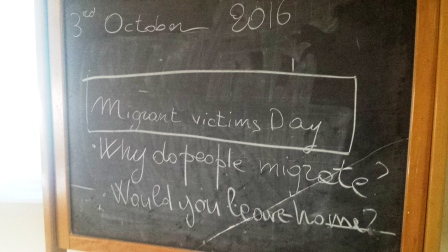 3rd October 2016
Migrant victims Day
· Why do people migrate?
· Would you leave home?